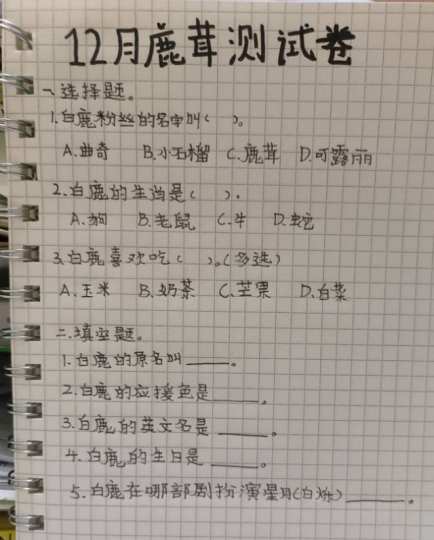 12月鹿茸测试卷
一、选择题。
1.白鹿粉丝的名字叫( )。
A.曲奇 B.小石榴 C.鹿茸 D.可露丽
2.白鹿的生肖是( )。
A.狗 B.老鼠 C.牛 D.蛇
3.白鹿喜欢吃( )。(多选)
A.玉米 B.奶茶 C.芒果 D.白菜
二.填空题。
1.白鹿的原名叫____。
2.白鹿的应援色是____。
3.白鹿的英文名是____。
4.白鹿的生日是____。
5.白鹿在哪部剧扮演星月(白烁)____。